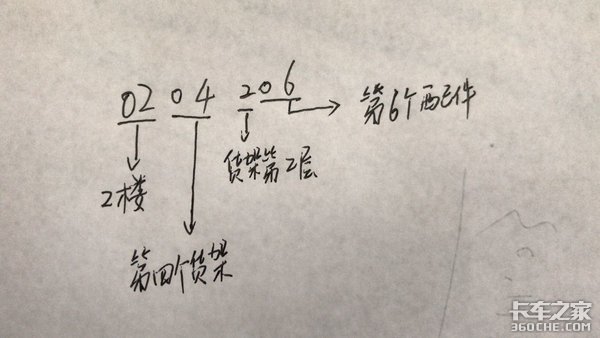 02 04 206
第6个配件
货架第2层
2楼
第四个货架
卡车之家
360CHE.COM